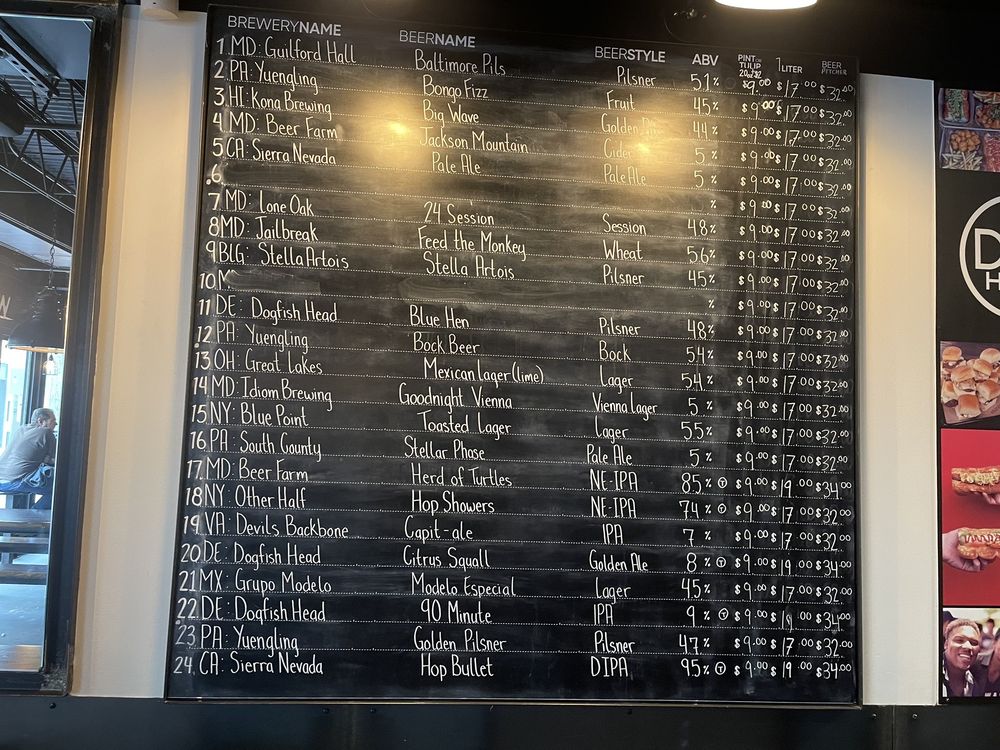 BREWERYNAME BEERNAME BEERSTYLE ABV PINT OR TULIP 1LITER BEER PITCHER
1. MD: Guilford Hall Baltimore Pils Pilsner 5.1% $9.00 $17.00 $32.00
2. PA: Yuengling Bongo Fizz Fruit 4.5% $9.00 $17.00 $32.00
3. HI: Kona Brewing Big Wave Golden 4.4% $9.00 $17.00 $32.00
4. MD: Beer Farm Jackson Mountain Cider 5% $9.00 $17.00 $32.00
5. CA: Sierra Nevada Pale Ale Pale Ale 5.% $9.00 $17.00 $32.00
6. % $9.00 $17.00 $32.00
7. MD: Lone Oak 24 Session Session 4.8% $9.00 $17.00 $32.00
8. MD: Jailbreak Feed the Monkey Wheat 5.6% $9.00 $17.00 $32.00
9. BLG: Stella Artois Stella Artois Pilsner 4.5% $9.00 $17.00 $32.00
10. M % $9.00 $17.00 $32.00
11. DE: Dogfish Head Blue Hen Pilsner 4.8% $9.00 $17.00 $32.00
12. PA: Yuengling Bock Beer Bock 5.4% $9.00 $17.00 $32.00
13. OH: Great Lakes Mexican Lager (lime) Lager 5.4% $9.00 $17.00 $32.00
14. MD: Idiom Brewing Goodnight Vienna Vienna Lager 5 % $9.00 $17.00 $32.00
15. NY: Blue Point Toasted Lager Lager 5.5% $9.00 $17.00 $32.00
16. PA: South County Stellar Phase Pale Ale 5% $9.00 $17.00 $32.00
17. MD: Beer Farm Herd of Turtles NE-IPA 8.5% Ⓣ $9.00 $19.00 $34.00
18. NY: Other Half Hop Showers NE-IPA 7.4% Ⓣ $9.00 $17.00 $32.00
19. VA: Devils Backbone Capit-ale IPA 7 % $9.00 $17.00 $32.00
20. DE: Dogfish Head Citrus Squall Golden Ale 8 % Ⓣ $9.00 $19.00 $34.00
21. MX: Grupo Modelo Modelo Especial Lager 4.5% $9.00 $17.00 $32.00
22. DE: Dogfish Head 90 Minute IPA 9 % Ⓣ $9.00 $19.00 $34.00
23. PA: Yuengling Golden Pilsner Pilsner 4.7% $9.00 $17.00 $32.00
24. CA: Sierra Nevada Hop Bullet DIPA 9.5% Ⓣ $9.00 $19.00 $34.00